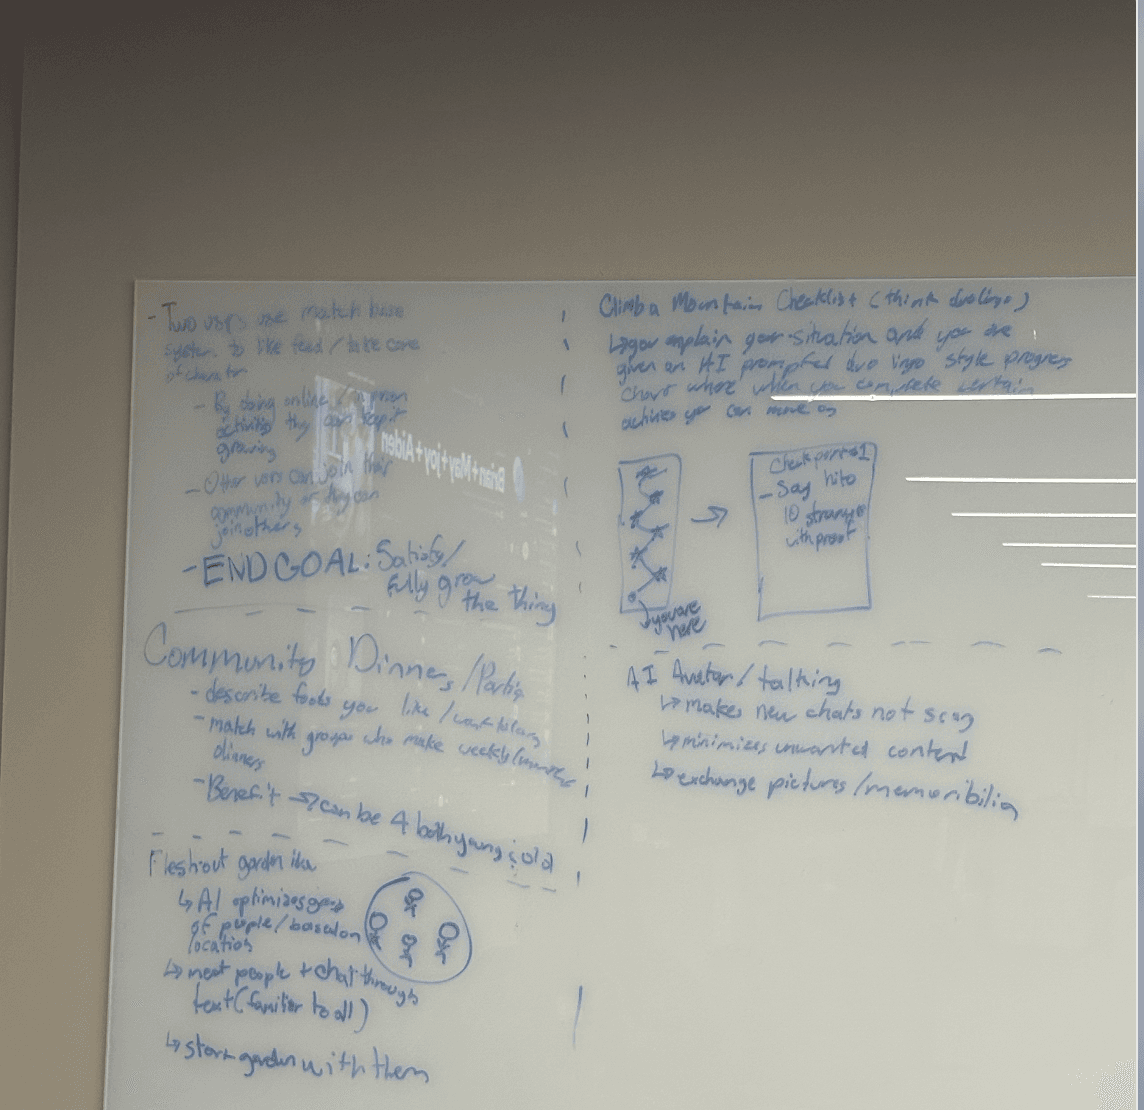 - Two users use match base
system to like feed / take care
of charator
- By doing online / in person
activities they can keep it
growing
- Other users can join their
community or they can
join others
- END GOAL: Satisfy/
fully grow
the thing
Community Dinners/Partis
- describe foods you like /
- match with groups who make weekly/
dinners
- Benefit → can be 4 both young & old
Flesh out garden idea
↳ AI optimizes
of people / based on
location
↳ meet people + chat through
text (familier to all)
↳ start garden with them
Climb a Mountain Checklist (think duolingo)
↳ you explain your situation and you are
given an AI prompted duo lingo style progress
chart where when you complete certain
you can move on
you are
here
→
Checkpoint #1
- Say hi to
10 strangers
with proof
AI Avatar / talking
↳ makes new chats not scary
↳ minimizes unwanted content
↳ exchange pictures / memoribilia
Brian+May+joy+Aiden